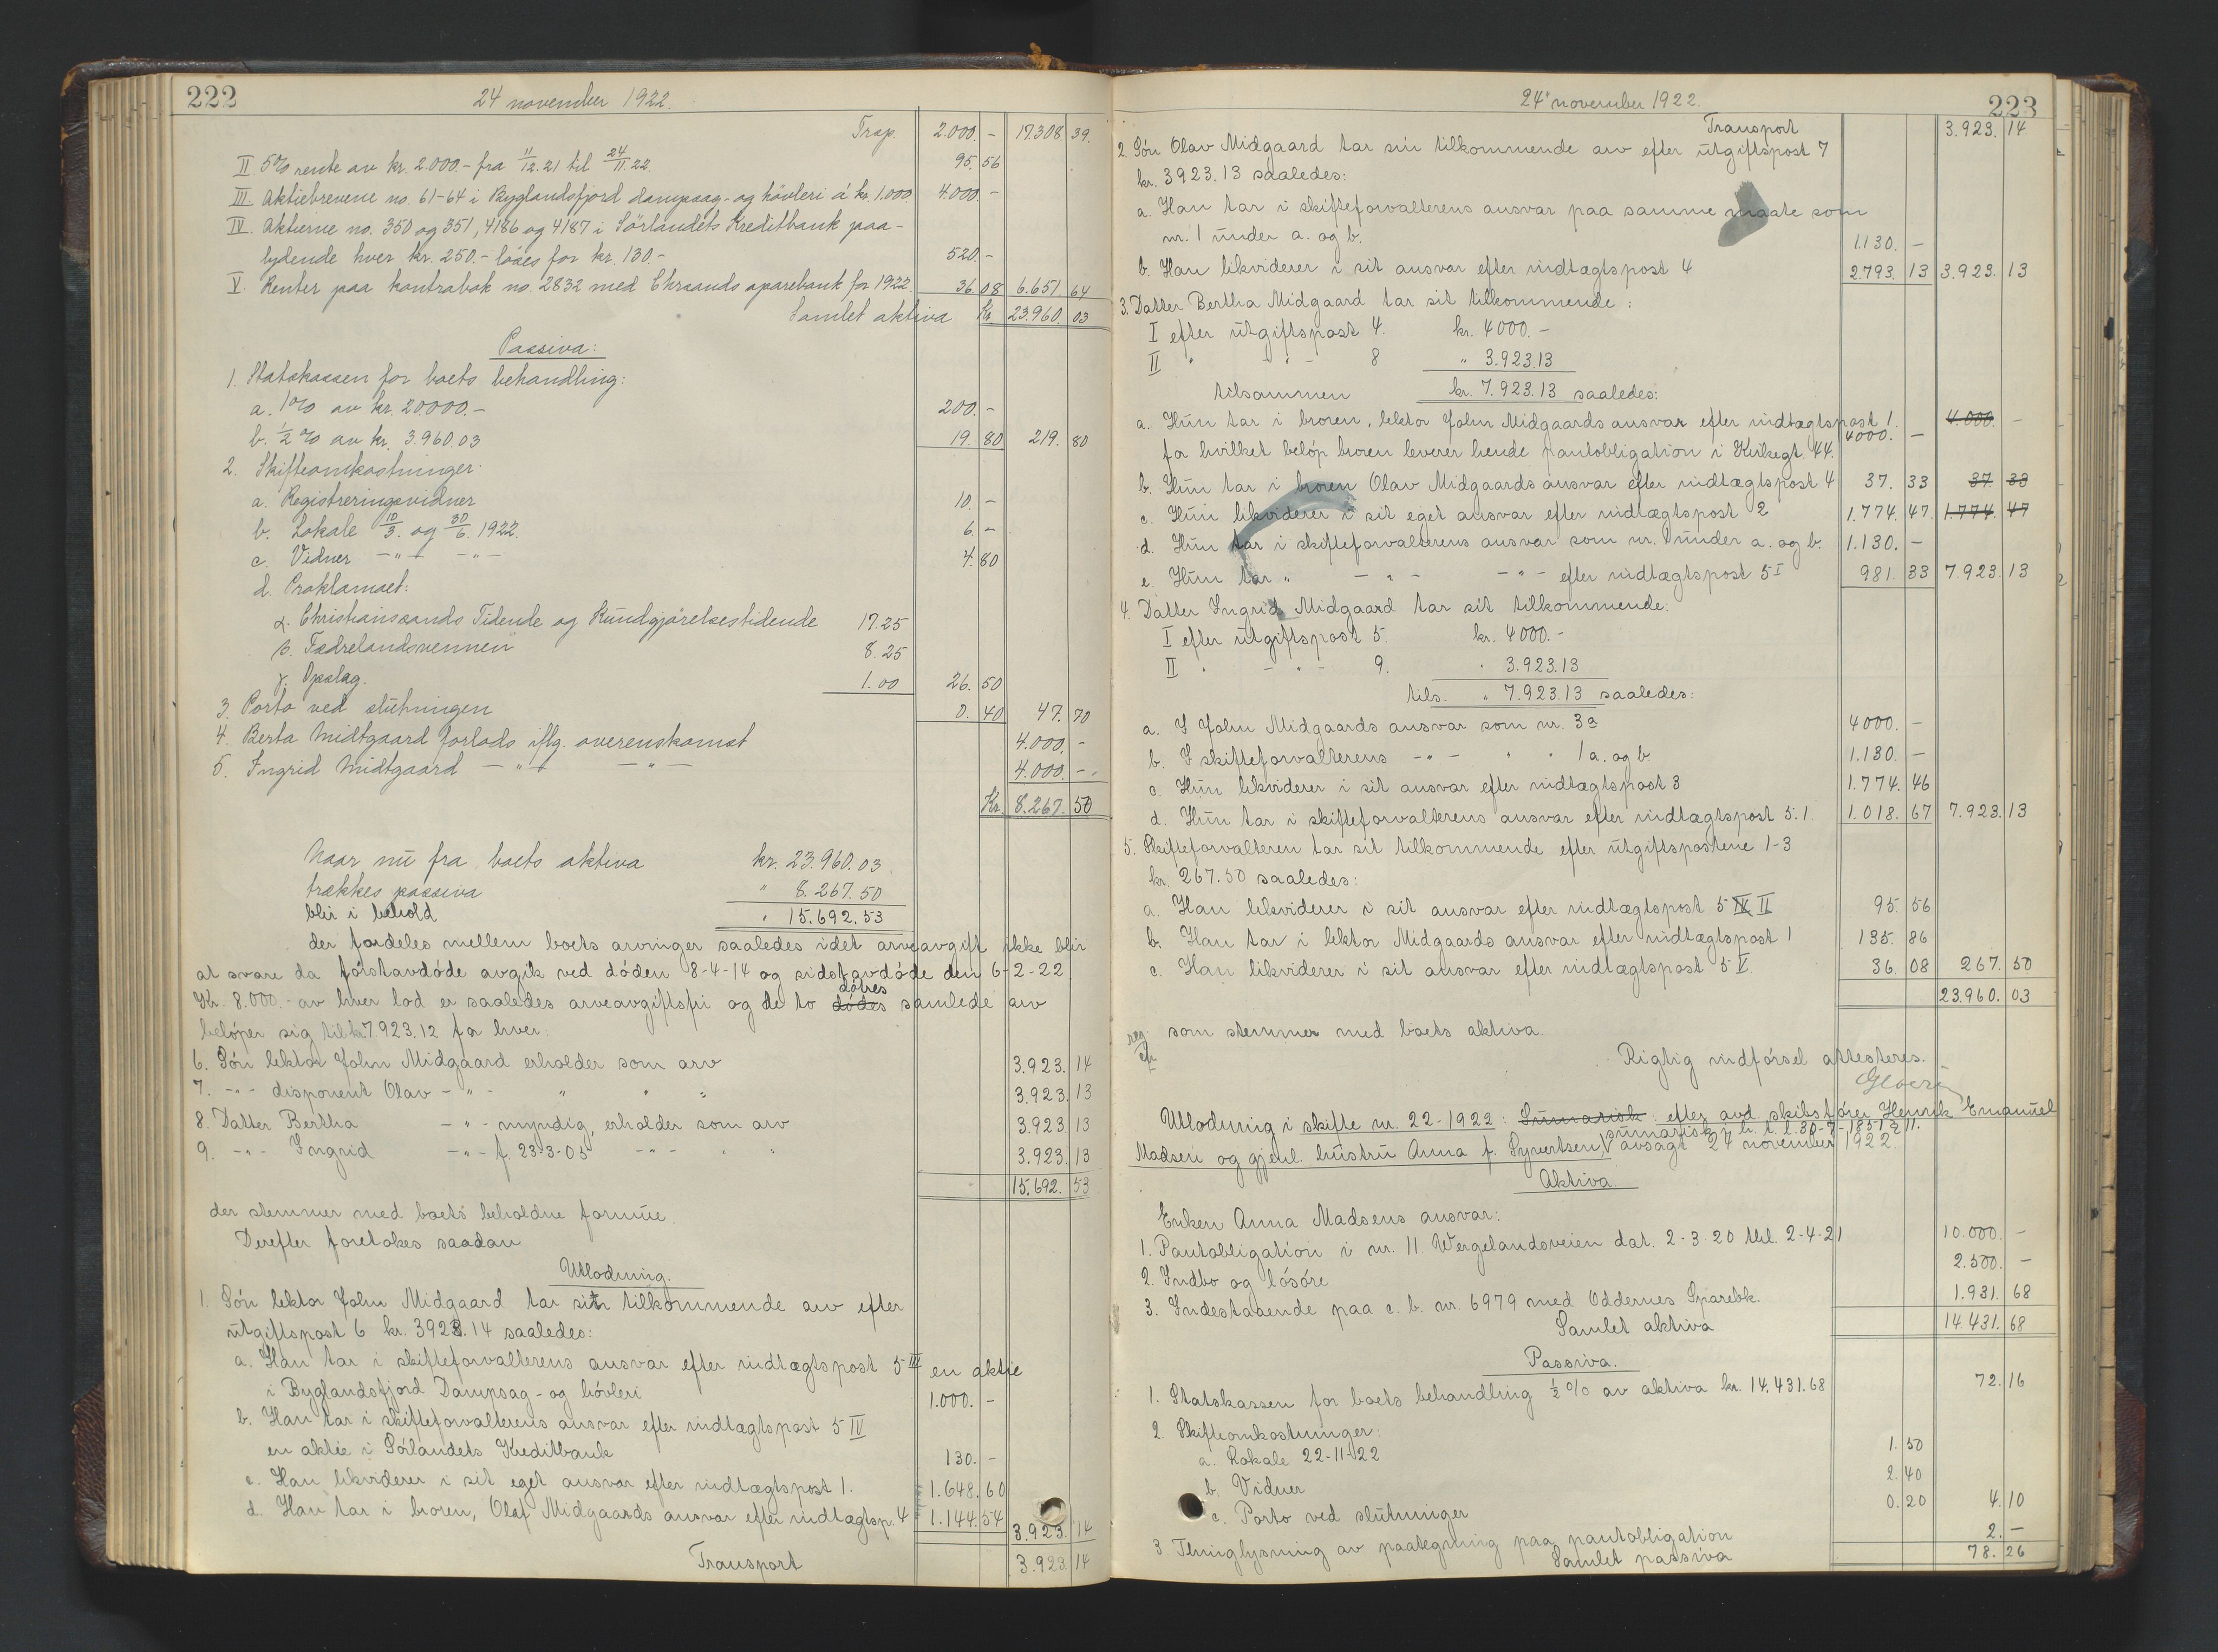 222
24 november 1922.
Trsp. 2.000. - 17.308 39.
II 5% rente av kr. 2.000.- fra 11/12.21 til 24/11.22. 95. 56
III Aktiebrevene no. 61-64 i Byglandsfjord dampsag- og hövleri á kr. 1.000 4.000. -
IV. Aktierne no. 350 og 351, 4186 og 4187 i Sörlandets Kreditbank paa-
lydende hver kr. 250.- löses for kr. 130.- 520. -
V. Renter paa kontrabok no. 2832 med Chrsands sparebank for 1922. 36. 08 6.651. 64
Samlet aktiva Kr. 23.960. 03
Passiva:
1. Statskassen for boets behandling:
a. 1% av kr. 20.000.- 200. -
b. 1/2% av kr. 3.960.03 19. 80 219. 80
2. Skifteomkostninger:
a. Registreringsvidner 10. -
b. Lokale 10/3. og 30/6. 1922. 6. -
c. Vidner -"- -"- 4. 80
d. Proklamaet:
α. Christianssands Tidende og Kundgjörelsestidende 17.25
β. Fædrelandsvennen 8.25
γ. Opslag. 1.00 26. 50
3. Porto ved slutningen 0. 40 47. 70
4. Berta Midtgaard forlods iflg. overenskomst 4.000. -
5. Ingrid Midtgaard -"- -"- 4.000. -
Kr. 8.267. 50
Naar nu fra boets aktiva kr. 23.960.03
trækkes passiva " 8.267.50
blir i behold " 15.692.53
der fordeles mellem boets arvinger saaledes idet arveavgift ikke blir
at svare da förstavdöde avgik ved döden 8-4-14 og sidstavdöde den 6-2-22
Kr. 8.000.- av hver lod er saaledes arveavgiftsfri og de to dödes dötres samlede arv
belöper sig til kr. 7923.12 for hver:
6. Sön lektor John Midgaard erholder som arv 3.923. 14
7. -"- disponent Olav -"- " " " 3.923. 13
8. Datter Bertha -"- myndig, erholder som arv 3.923 13
9. -"- Ingrid -"- f. 23-3-05 -"- " " 3.923. 13
15.692. 53
der stemmer med boets beholdne formue.
Derefter foretokes saadan
Utlodning.
1. Sön lektor John Midgaard tar sin tilkommende arv efter
utgiftspost 6 kr. 3923.14 saaledes:
a. Han tar i skifteforvalterens ansvar efter indtægtspost 5 III en aktie
i Byglandsfjord Dampsag- og hövleri 1.000. -
b. Han tar i skifteforvalterens ansvar efter indtægtspost 5 IV
en aktie i Sörlandets Kreditbank 130. -
c. Han likviderer i sit eget ansvar efter indtægtspost 1. 1.648. 60
d. Han tar i broren, Olaf Midgaards ansvar efter indtægtsp. 4 1.144. 54 3.923. 14
Transport 3.923. 14
24' november 1922.
223
Transport 3.923. 14
2. Sön Olav Midgaard tar sin tilkommende arv efter utgiftspost 7
kr. 3923.13 saaledes:
a. Han tar i skifteforvalterens ansvar paa samme maate som
nr. 1 under a. og b. 1.130. -
b. Han likviderer i sit ansvar efter indtægtspost 4 2.793. 13 3.923. 13
3. Datter Bertha Midgaard tar sit tilkommende:
I efter utgiftspost 4. kr. 4000.-
II " -"- 8 " 3.923.13
tilsammen kr. 7.923.13 saaledes:
a. Hun tar i broren, lektor John Midgaards ansvar efter indtægtspost 1. 4.000. -
for hvilket belöp broren leverer hende pantobligation i Kirkegt. 44. 4000. -
b. Hun tar i broren Olav Midgaards ansvar efter indtægtspost 4 37. 33 37. 33
c. Hun likviderer i sit eget ansvar efter indtægtspost 2 1.774. 47. 1.774. 47
d. Hun tar i skifteforvalterens ansvar som nr. 1 under a. og b. 1.130. -
e. Hun tar " -"- -"- efter indtægtspost 5 I 981. 33 7.923. 13
4. Datter Ingrid Midgaard tar sit tilkommende:
I efter utgiftspost 5. kr. 4000.-
II " -"- 9. " 3.923.13
tils. " 7.923.13 saaledes:
a. I John Midgaards ansvar som nr. 3a 4000. -
b. I skifteforvalterens -"- " " 1 a. og b 1.130. -
c. Hun likviderer i sit ansvar efter indtægtspost 3 1.774. 46
d. Hun tar i skifteforvalterens ansvar efter indtægtspost 5.1. 1.018. 67 7.923. 13
5. Skifteforvalteren tar sit tilkommende efter utgiftspostene 1-3
kr. 267.50 saaledes:
a. Han likviderer i sit ansvar efter indtægtspost 5 II 95. 56
b. Han tar i lektor Midgaards ansvar efter indtægtspost 1 135. 86
c. Han likviderer i sit ansvar efter indtægtspost 5 V. 36. 08 267. 50
23.960. 03
som stemmer med boets aktiva.
reg
Rigtig indförsel attesteres.
Utlodning i skifte nr. 22-1922: Summarisk: efter avd. skibsförer Henrik Emanuel
summarisk i h. t. l. 30-7-1851 § 11.
Madsen og gjenl. hustru Anna f. Syvertsen, avsagt 24 november 1922.
Aktiva
Enken Anna Madsens ansvar:
1. Pantobligation i nr. 11. Wergelandsveien dat. 2-3-20 thl. 2-4-21 10.000. -
2. Indbo og lösöre 2.500. -
3. Indestaaende paa c. b. nr. 6979 med Oddernes Sparebk. 1.931. 68
Samlet aktiva 14.431. 68
Passiva.
1. Statskassen for boets behandling 1/2% av aktiva kr. 14.431.68 72. 16
2. Skifteomkostninger:
a. Lokale 22-11-22 1. 50
b. Vidner 2. 40
c. Porto ved slutninger 0. 20 4. 10
3. Tinglysning av paategning paa pantobligation 2. -
Samlet passiva 78. 26